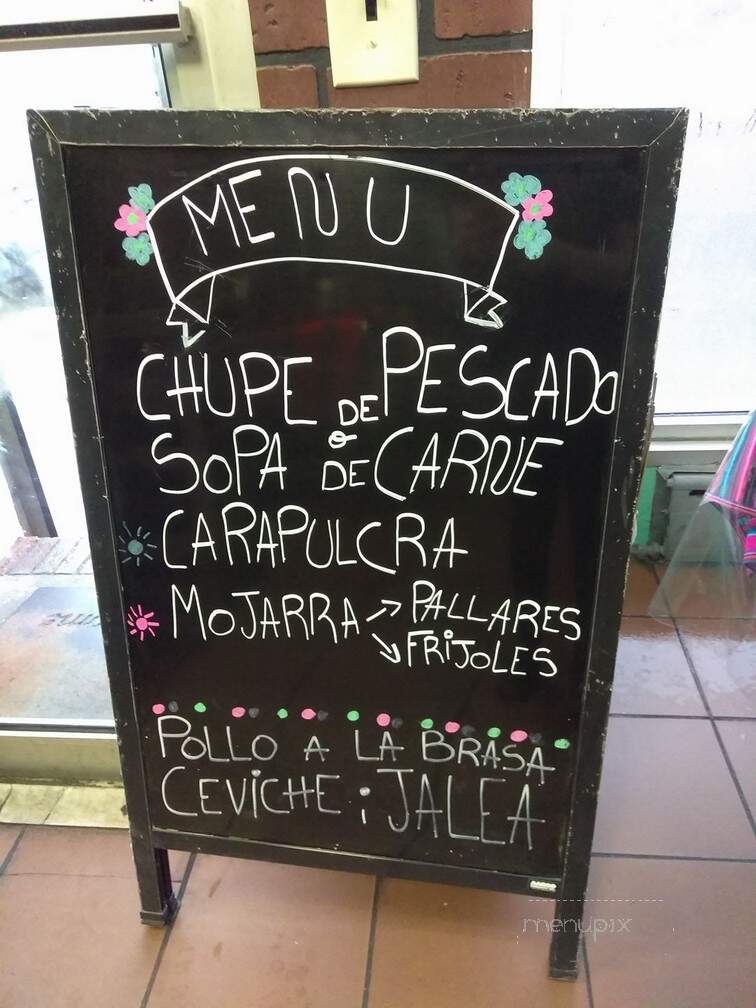 MENU
CHUPE DE PESCADO
o
SOPA DE CARNE
CARAPULCRA
MOJARRA PALLARES
FRIJOLES
POLLO A LA BRASA
CEVICHE ; JALEA
menupix